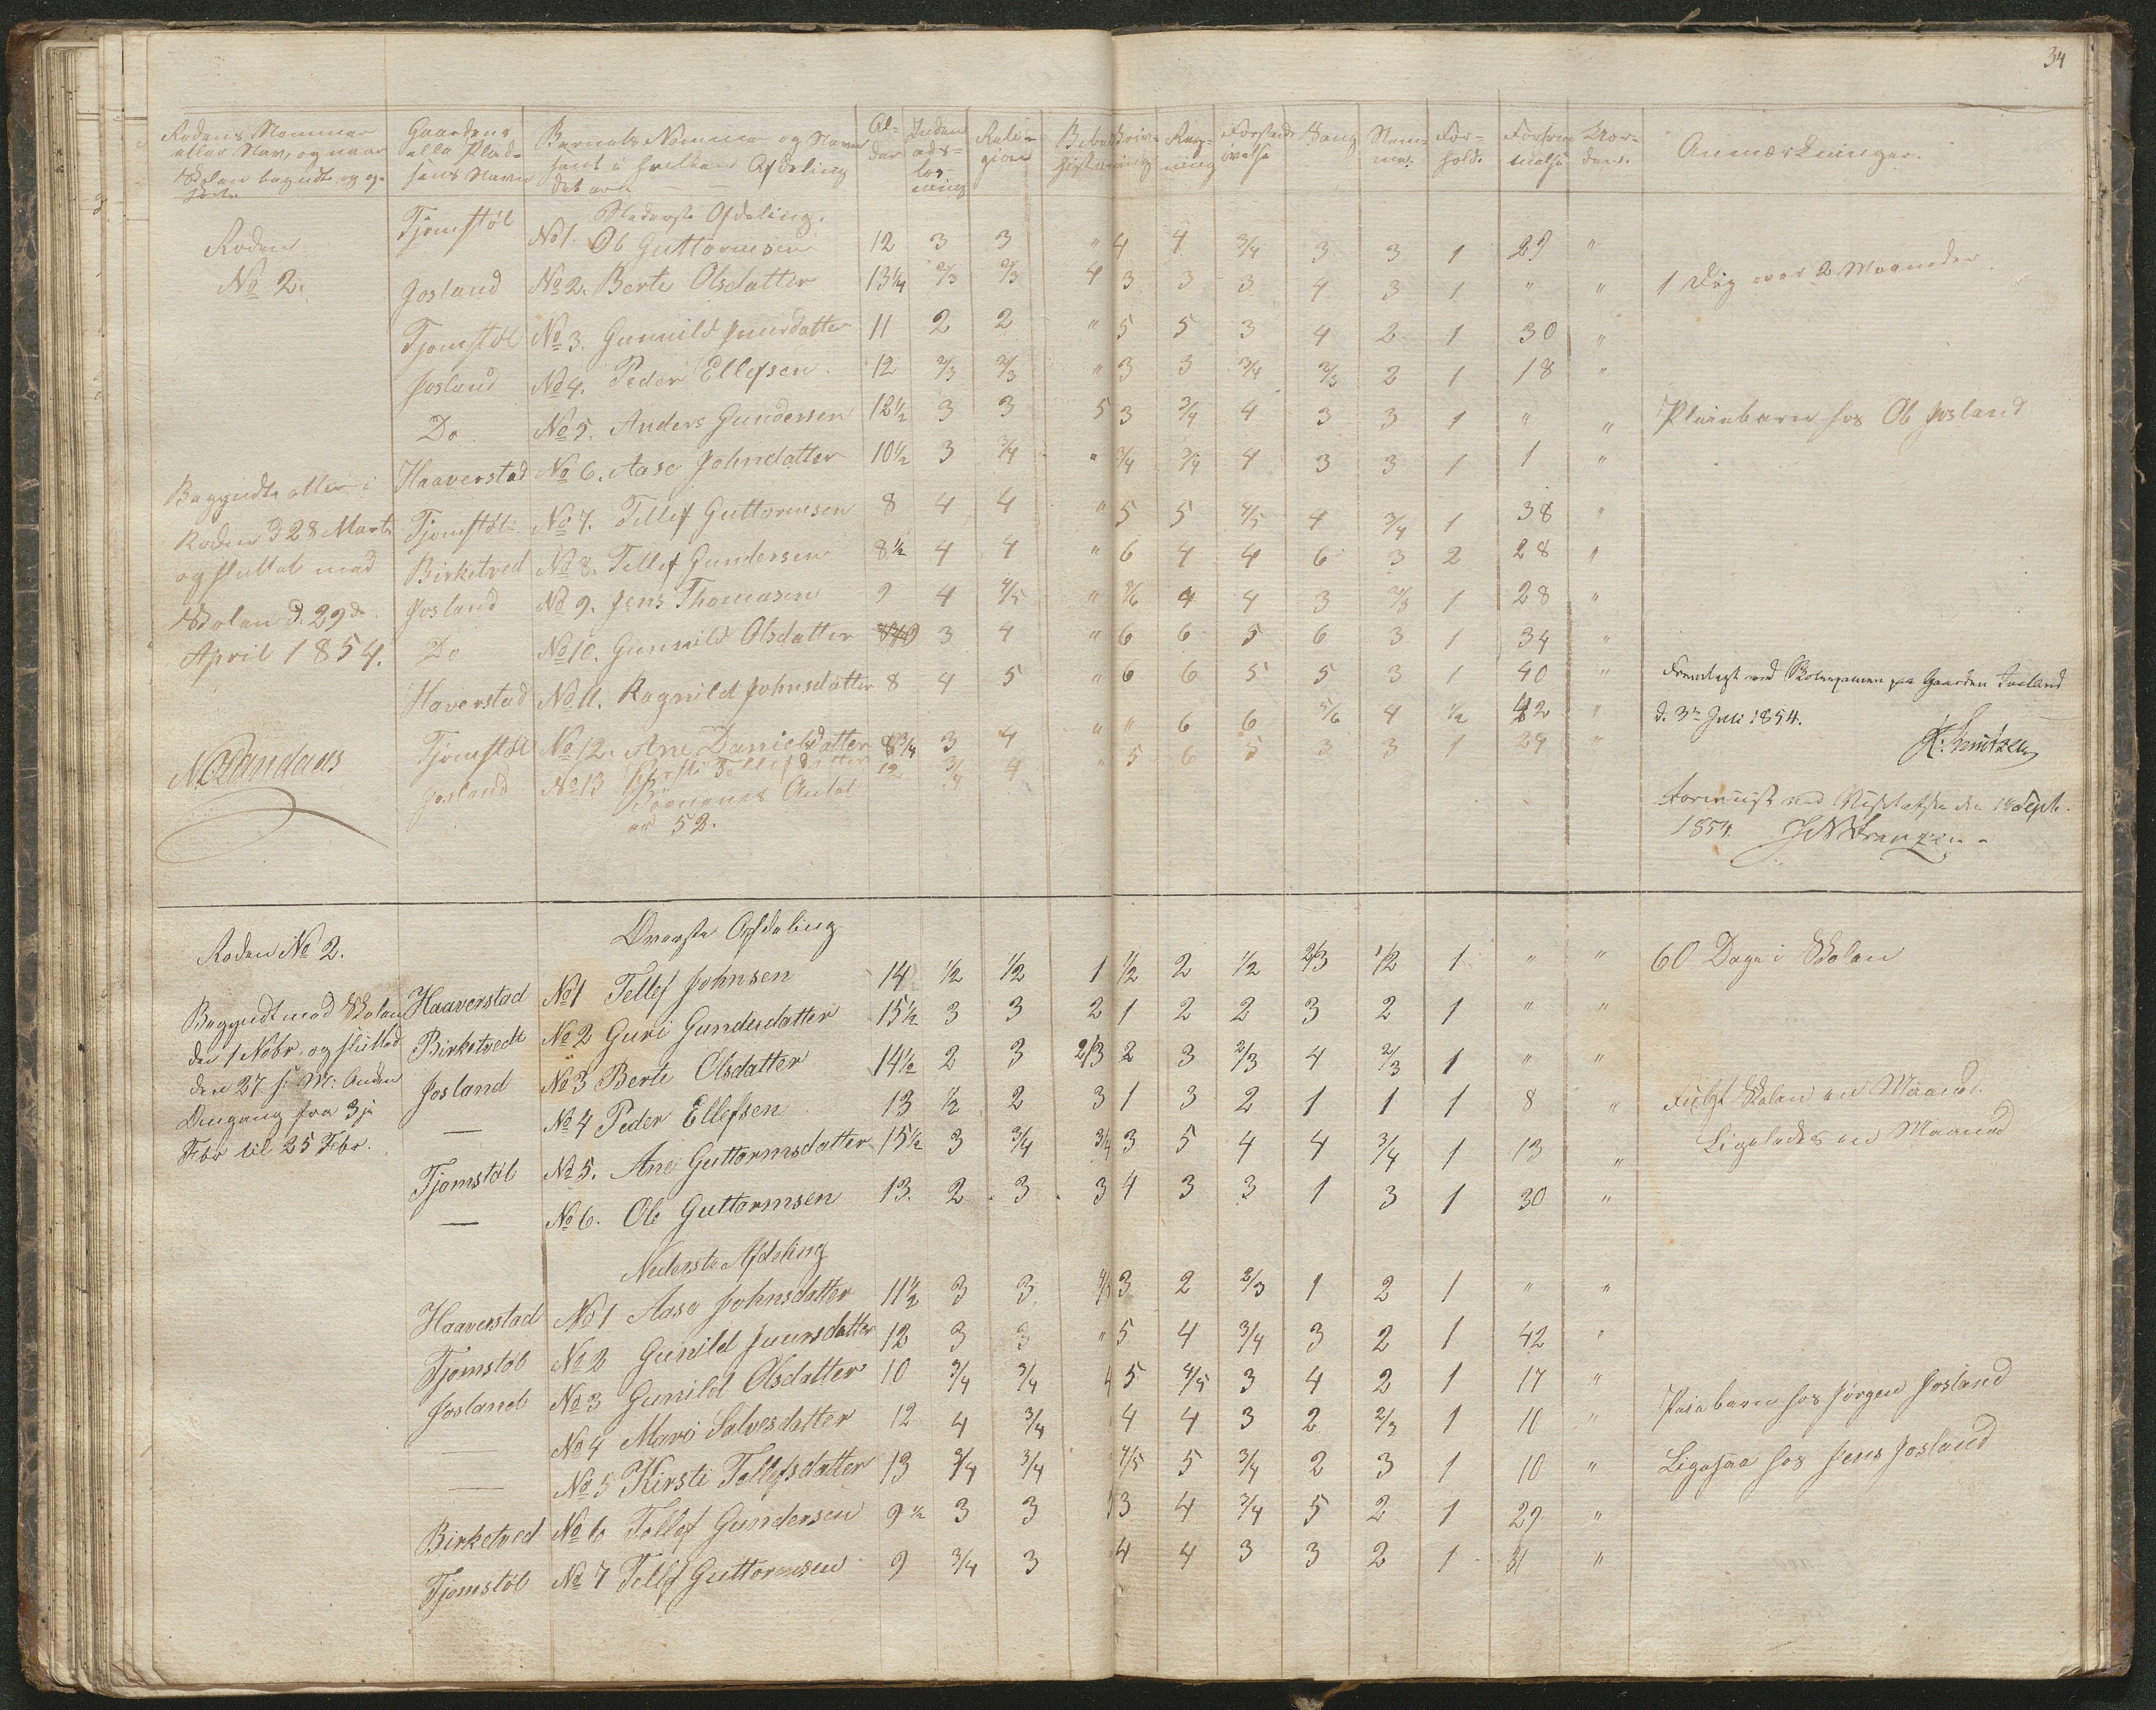 34
Rodens Nommer eller Navn, og naar Skolen begyndte og op-
Gaardens eller Plad-sens Navn
Barnets Nommer og Navn samt i hvilken Afdeling det er
Al-der
Inden-ads-læs-ning
Reli-gion
Skriv-ning
Reg-ning
Forstands-øvelse
Sang
For-hold.
Forsøm-melse
Anmærkninger.
Nederste Afdeling.
Roden Tjomstöl No 1. Ole Guttormsen 12 3 3 " 4 4 3/4 3 3 1 29 "
No 2. Josland No 2. Berte Olsdatter 13 1/4 2/3 2/3 4 3 3 3 4 3 1 " " 1 Dag over 2 Maaneder
Tjomstöl No 3. Gunnild Jensdatter 11 2 2 " 5 5 3 4 2 1 30 "
Josland No 4. Peder Ellefsen 12 2/3 2/3 " 3 3 3/4 2/3 2 1 18 "
Do No 5. Anders Gundersen 12 1/2 3 3 5 3 3/4 4 3 3 1 " " Pleiebarn hos Ole Josland
Haaverstad No 6. Aase Johndatter 10 1/2 3 3/4 " 3/4 3/4 4 3 3 1 1 "
Begyndte atter i Roden d 28 Marts og sluttet med Skolen d. 29de April 1854.
Tjomstöl No 7. Tellef Guttormsen 8 4 4 " 5 5 4/5 4 3/4 1 38 "
Birketved No 8. Tellef Gundersen 8 1/2 4 4 " 6 4 4 6 3 2 28 "
Josland No 9. Jens Thomasen 9 4 4/5 " 5/6 4 4 3 2/3 1 28 "
Do No 10. Gunnild Olsdatter 3 4 " 6 6 5 6 3 1 34 "
Haverstad No 11. Ragnild Johnsdatter 8 4 5 " 6 6 5 5 3 1 40 "
Tjomstöl No 12. Ane Danielsdatter 3 4 " " 6 6 5/6 4 1/2 42 "
Josland No 13 Kirsti Tellefsdatter 12 3/4 4 " 5 6 5 3 3 1 24 "
Börnenes Antal er 52.
Fremlagt ved Skoleexamen paa Gaarden Josland
d. 3die Juli 1854.
K. Knutzen
1854.
Roden No 2. Øverste Afdeling
Begyndt med Skolen den 1 Nobr. og sluttet den 27 s: M: Anden Omgang fra 3je Febr til 25 Febr.
Haaverstad No 1 Tellef Johnsen 14 1/2 1/2 1 1/2 2 1/2 2/3 1/2 1 " " 60 Dage i Skolen
Birketvedt No 2 Guri Gundersdatter 15 1/2 3 3 2 1 2 2 3 2 1 " "
Josland No 3 Berte Olsdatter 14 1/2 2 3 2/3 2 3 2/3 4 2/3 1 " "
— No 4 Peder Ellefsen 13 1/2 2 3 1 3 2 1 1 1 8 " Fulgt Skolen en Maaned.
Tjomstöl No 5. Ane Guttormsdatter 15 1/2 3 3/4 3/4 3 5 4 4 3/4 1 13 " Ligeledes en Maaned
— No 6. Ole Guttormsen 13. 2 3 3 4 3 3 1 3 1 30 "
Nederste Afdeling
Haaverstad No 1 Aase Johnsdatter 11 1/2 3 3 3 2 2/3 1 2 1 " "
Tjomstöl No 2 Gunild Jensdatter 12 3 3 " 5 4 3/4 3 2 1 42 "
Josland No 3 Gunild Olsdatter 10 3/4 3/4 4 5 4/5 3 4 2 1 17 "
— No 4 Mari Salvesdatter 12 4 3/4 4 4 3 2 2/3 1 10 " Pleiebarn hos Jörgen Josland
— No 5 Kirsti Tellefsdatter 13 3/4 3/4 4/5 5 3/4 2 3 1 10 " Ligesaa hos Jens Josland
Birketved No 6 Tellef Gundersen 9 1/2 3 3 3 4 3/4 5 2 1 29 "
Tjomstöl No 7 Tellef Guttormsen 9 3/4 3 4 4 3 3 2 1 31 "